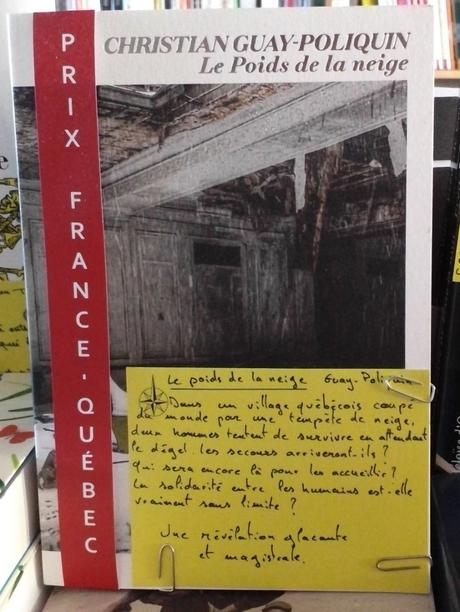 PRIX FRANCE-QUÉBEC
CHRISTIAN GUAY-POLIQUIN
Le Poids de la neige
Le poids de la neige Guay-Poliquin
Dans un village québécois coupé
du monde par une tempête de neige,
deux hommes tentent de survivre en attendant
le dégel. Les secours arriveront-ils ?
Qui sera encore là pour les accueillir ?
La solidarité entre les humains est-elle
vraiment sans limite ?
Une révélation glaçante
et magistrale.